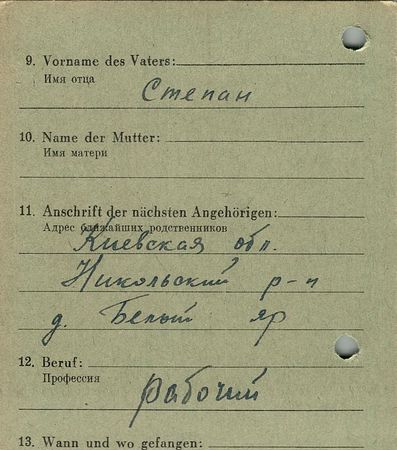 9. Vorname des Vaters:
Имя отца
Степан
10. Name der Mutter:
Имя матери
11. Anschrift der nächsten Angehörigen:
Адрес ближайших родственников
Киевская обл.
Никольский р-н
д. Белый яр
12. Beruf:
Профессия
рабочий
13. Wann und wo gefangen: